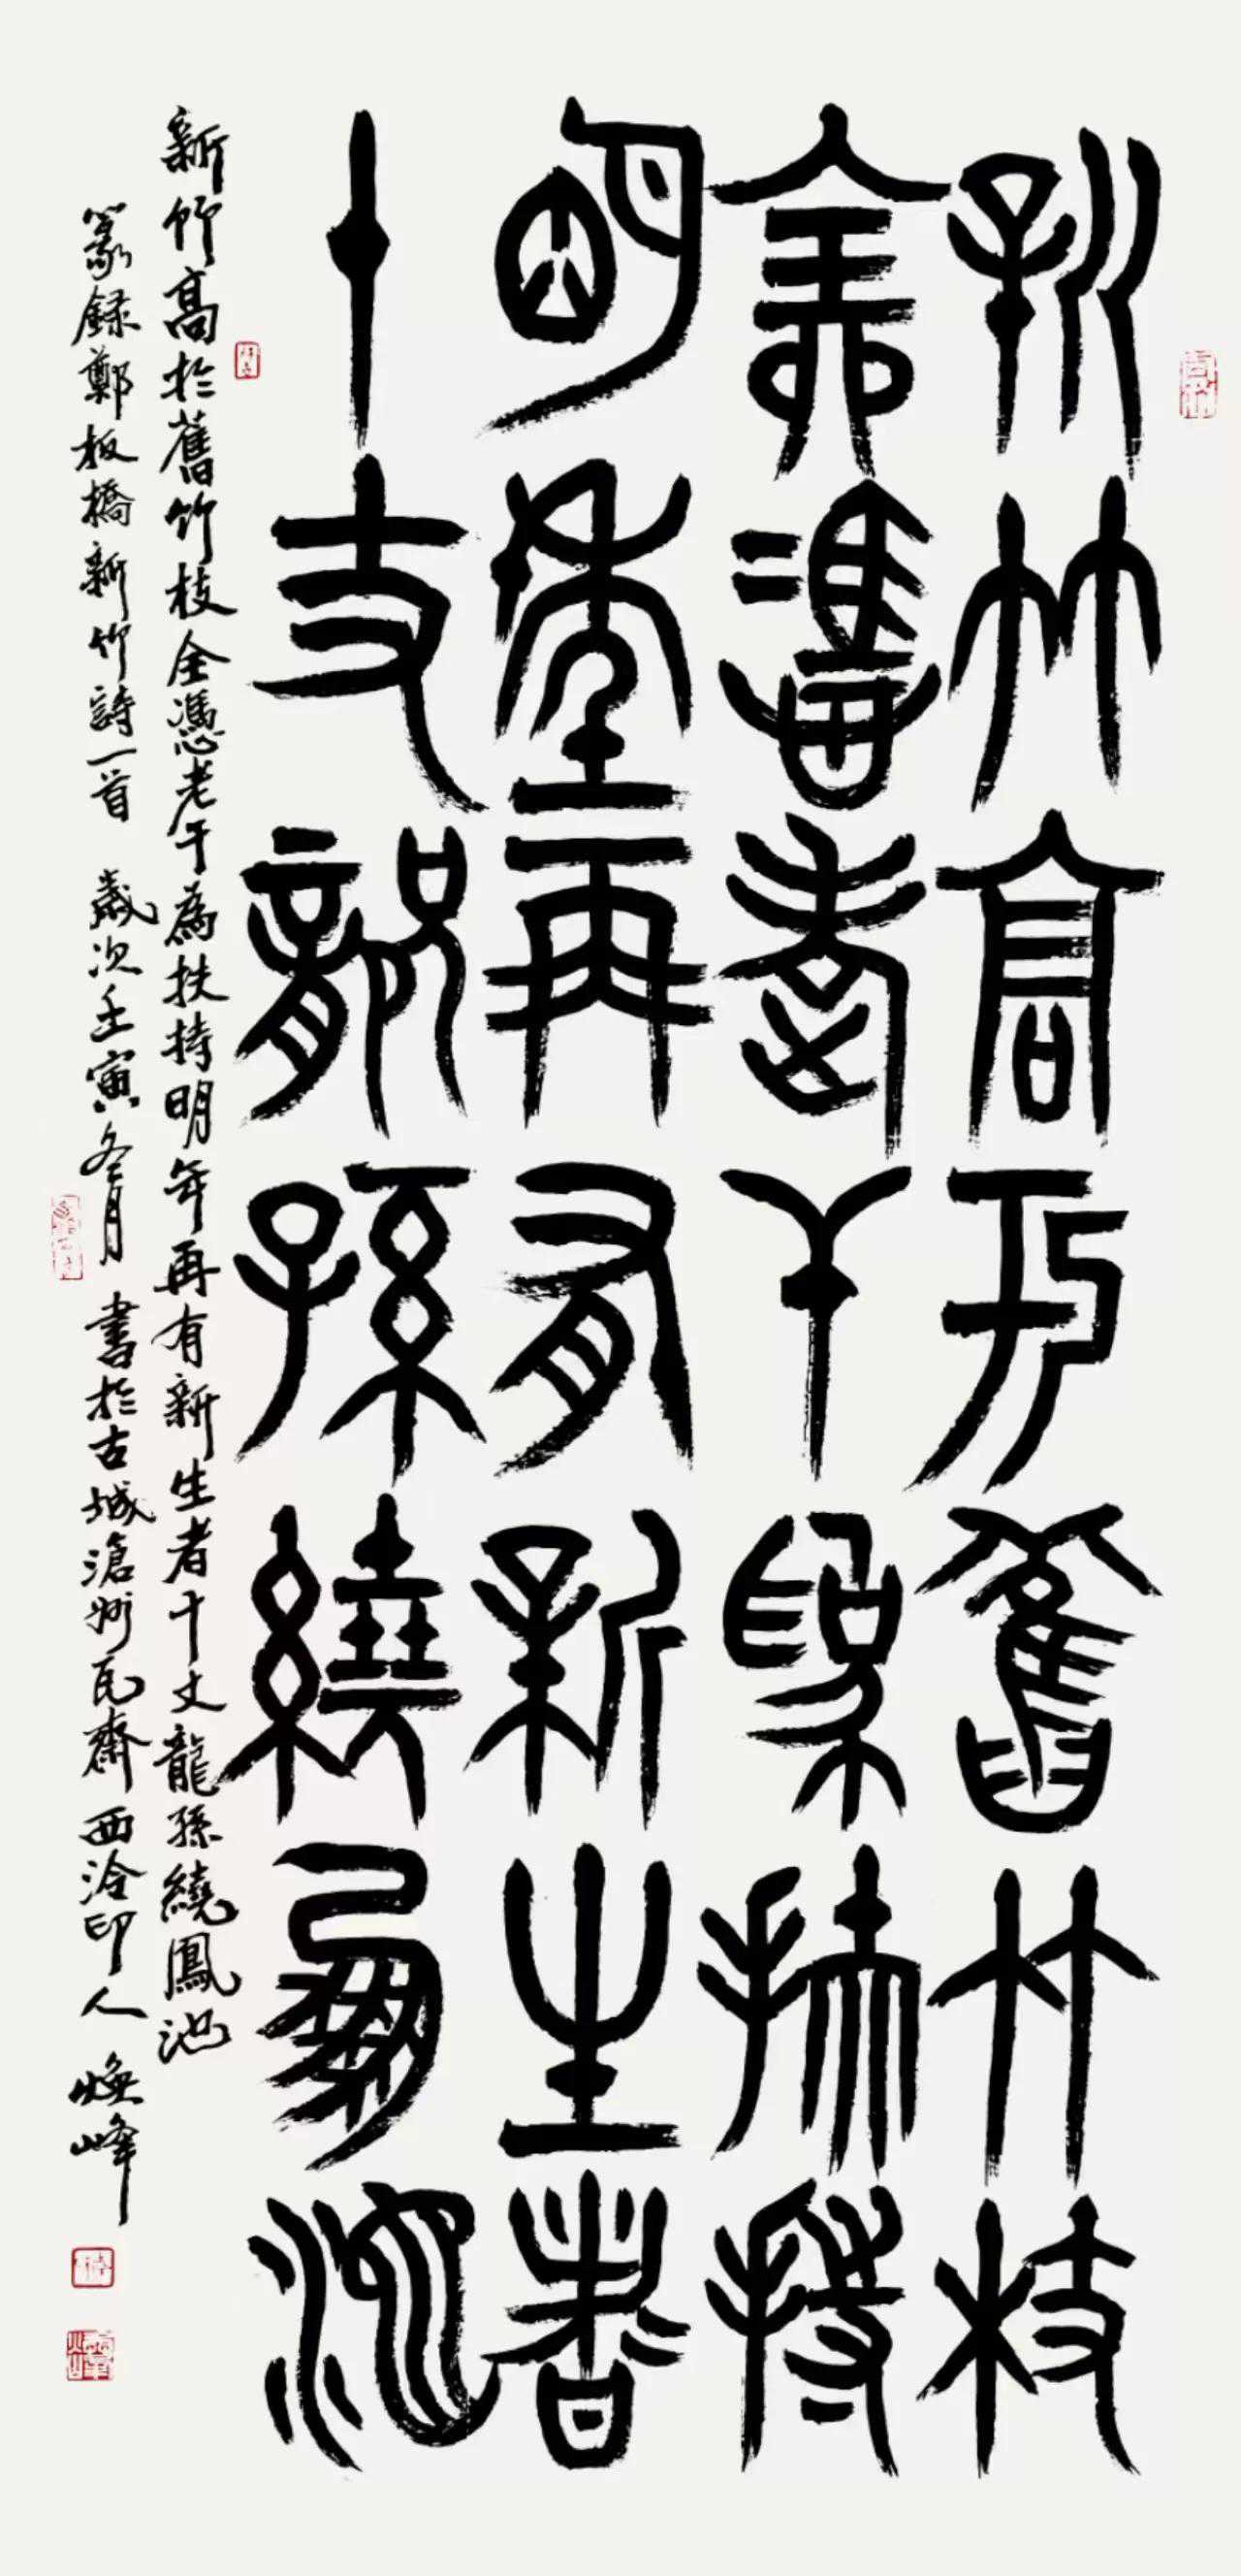 新竹高於舊竹枝
全憑老干為扶持
明年再有新生者
十丈龍孫繞鳳池
新竹高於舊竹枝全憑老干為扶持明年再有新生者十丈龍孫繞鳳池
篆録鄭板橋新竹詩一首 歲次壬寅冬月 書於古城滄州瓦齋西泠印人 煥峰